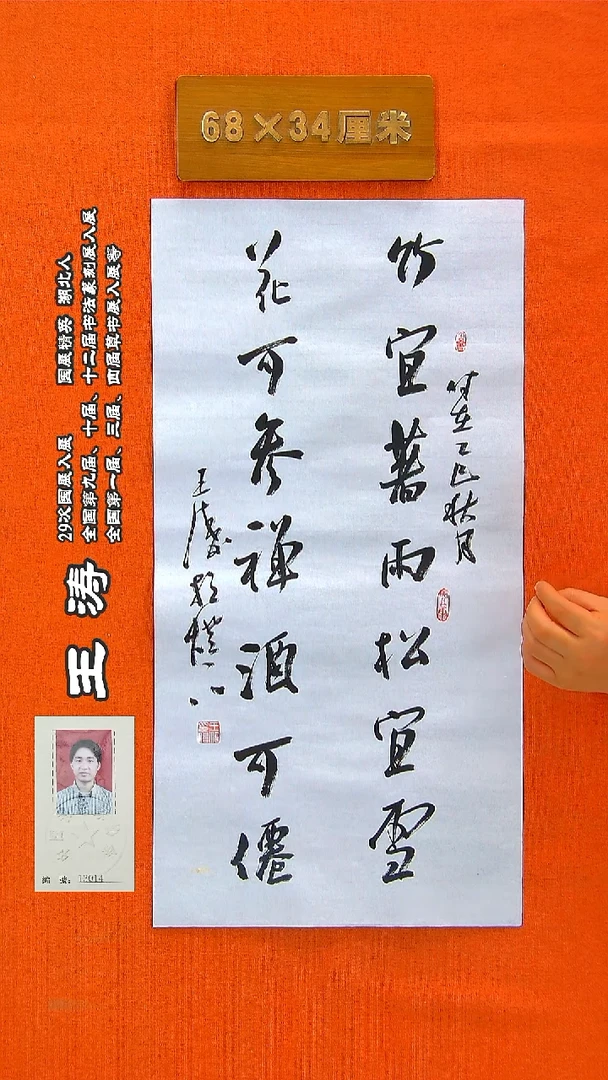 68×34厘米
竹宜著雨松宜雪
花可参禅酒可僊
时在乙巳秋月
王涛
29次国展入展 国展精英 湖北人
全国第九届、十届、十二届书法篆刻展入展
全国第一届、三届、四届草书展入展等
王涛